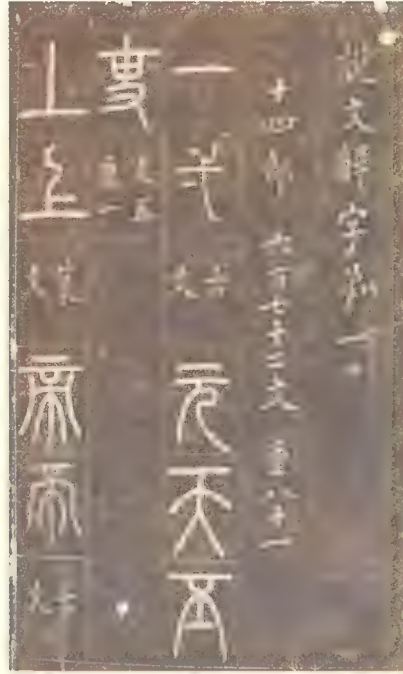 說文解字弟一
十四部 六百七十二文 重八十一
一 弌 古文 元 天 丕
吏 文五 重一
丄 上 篆文 帝 帝 古文